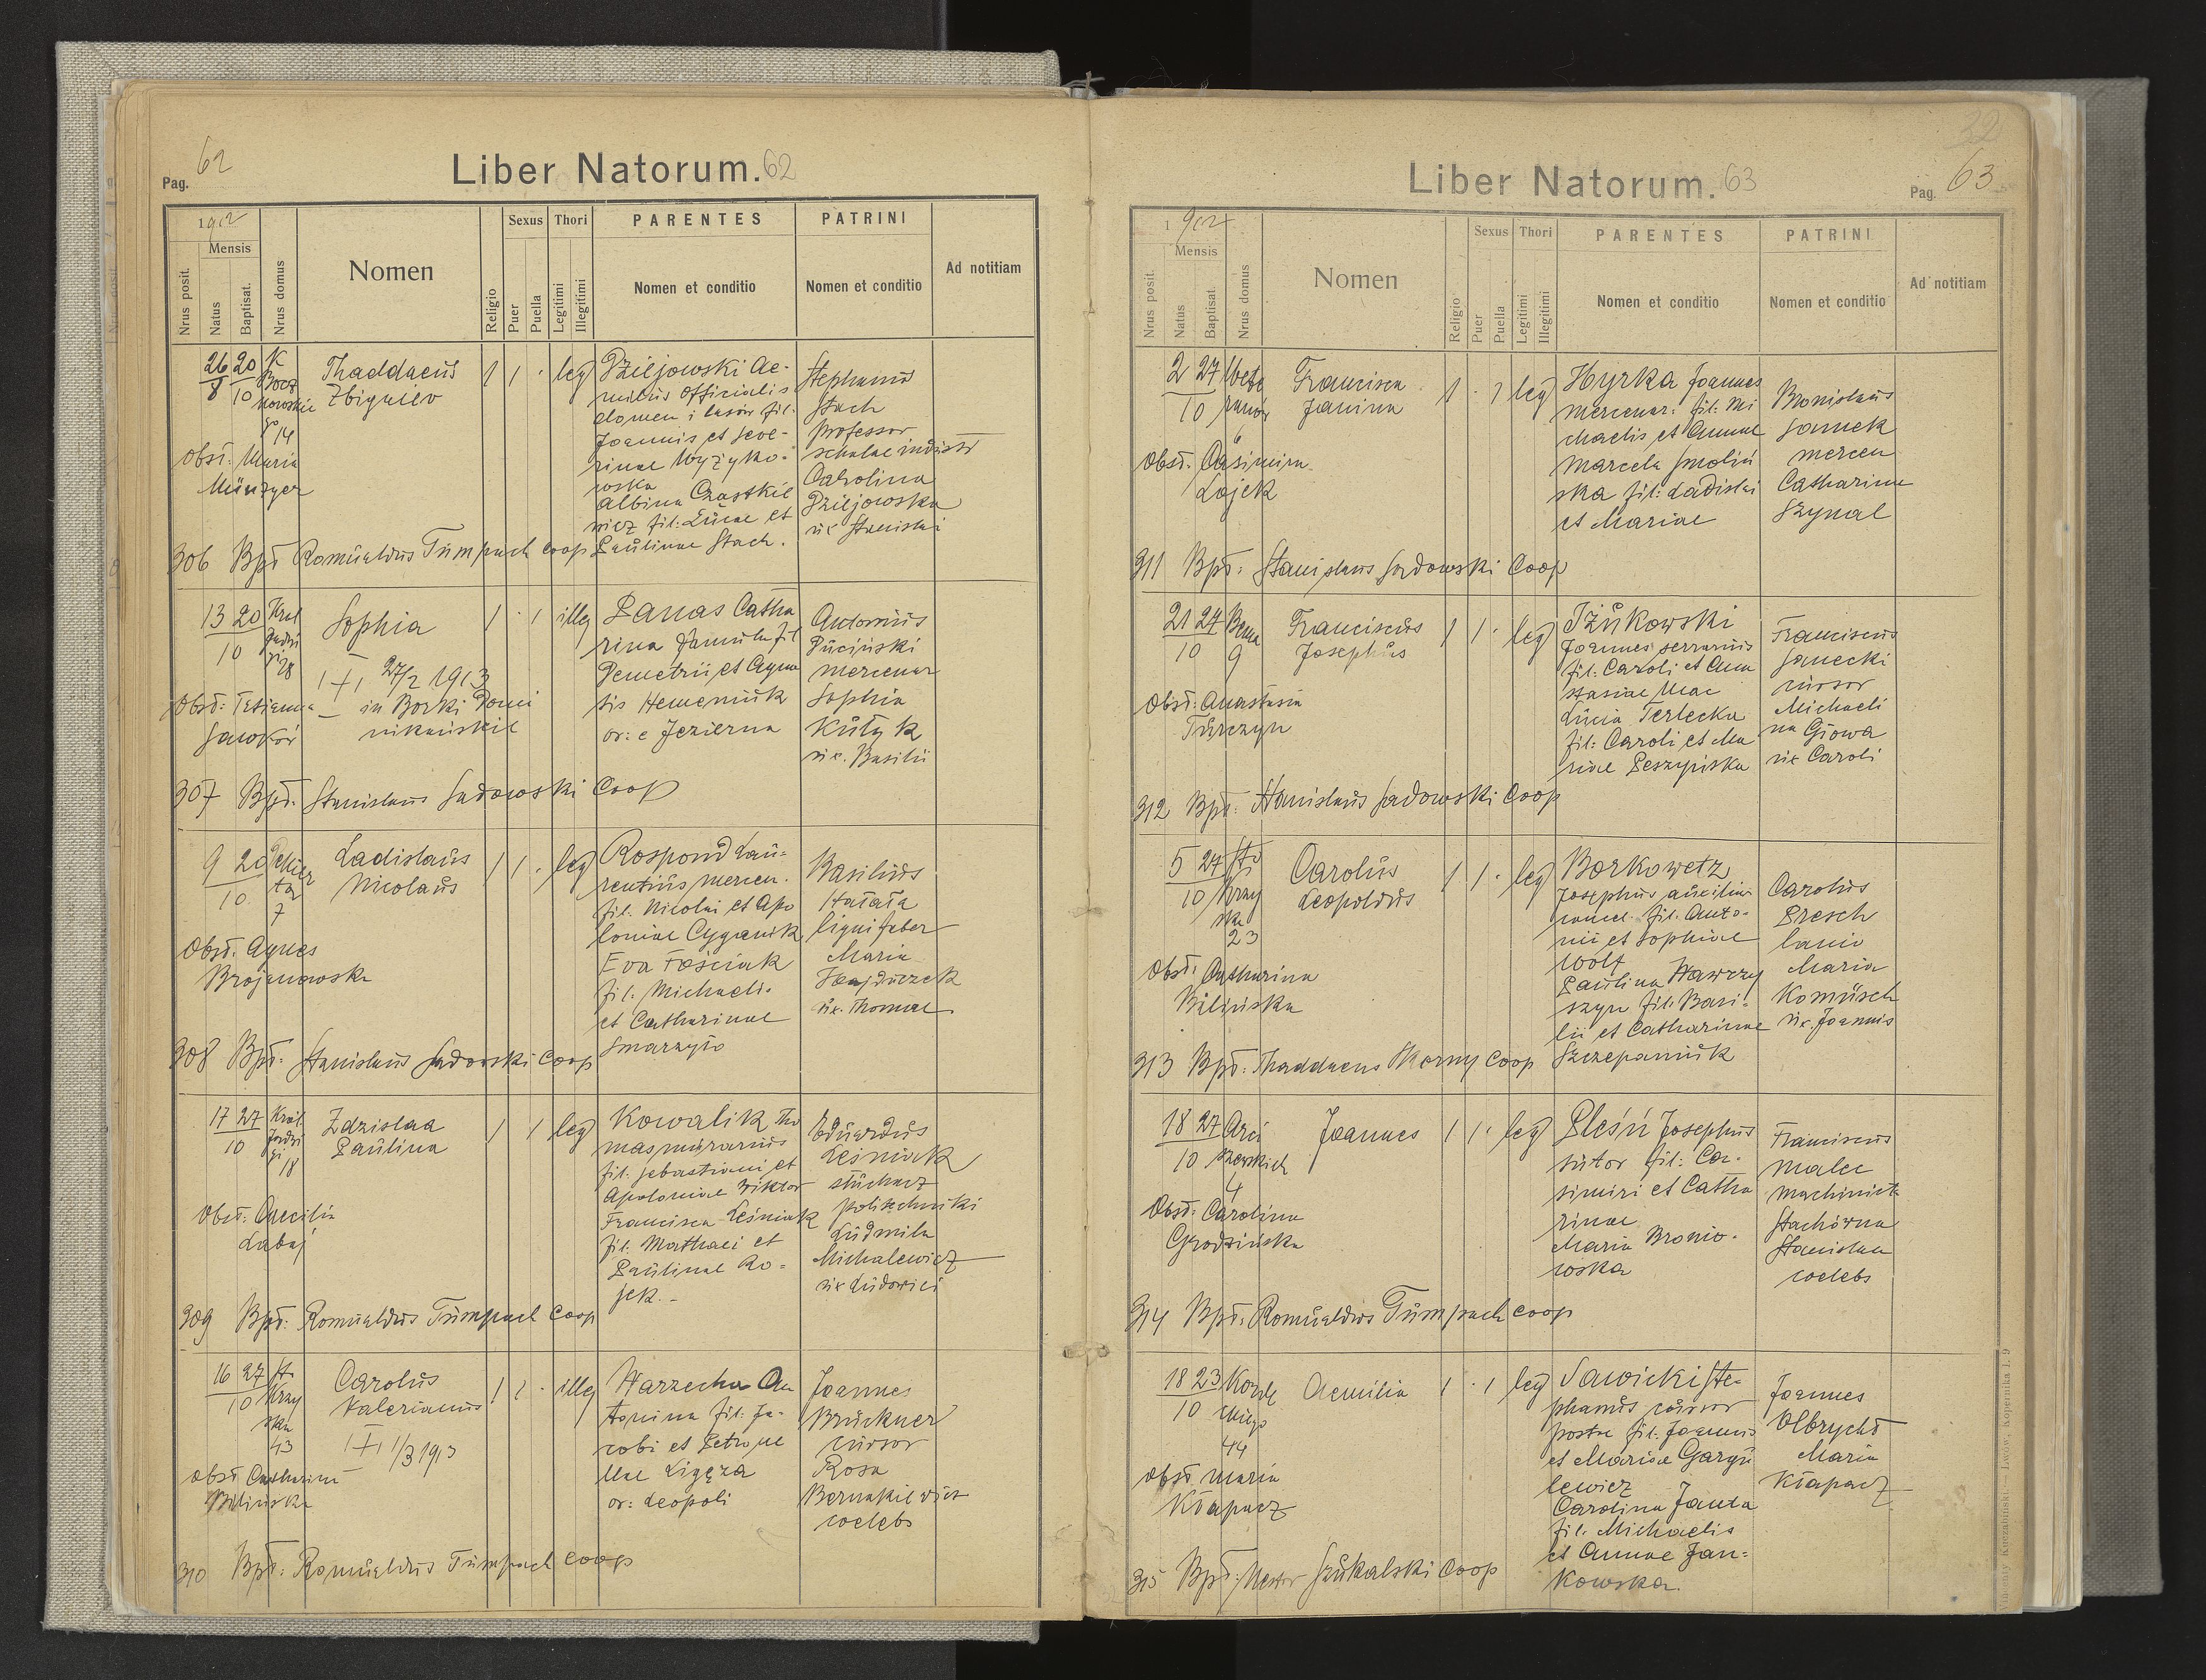 Pag. 62
Liber Natorum. 62
1902
Mensis
Nrus posit.
Natus
Baptisat.
Nrus domus
Nomen
Religio
Sexus
Puer
Puella
Thori
Legitimi
Illegitimi
PARENTES
Nomen et conditio
PATRINI
Nomen et conditio
Ad notitiam
26 20
8 10
14
Thaddaeus
Zbigniev
1 1 · leg
Dziejowski Ae-
milius officialis
fil.
Joannis et Seve-
rinae Wyżyko-
wska
Albina Czastkie
wicz fil: Lucae et
Paulinae Stach.
Stephanus
Stach
professor
scholae industr
Carolina
Dziejowska
ux Stanislai
Obst: Maria
Münzger
306 Bpt Romualdus Tumpach coop
13 20
10
28
Sophia
1 · 1 illeg
27/2 1913
in Borki Domi
nikańskie
Panas Catha
rina famula fil
Demetrii et Agna
tis Hemeniuk
or: e Jezierna
Antonius
Puciński
mercenar
Sophia
Kutyk
ux. Basilii
Obst: Tatianna
307 Bpt. Stanislaus Sadowski Coop
9 20
10
7
Ladislaus
Nicolaus
1 1 · leg
Rospond Lau-
rentius mercen.
fil. Nicolai et Apo
loniae Cyganik
Eva Tościak
fil. Michaeli.
et Catharinae
Smarzyio
Basilius
Hałała
lignifaber
Maria
Hajduczek
ux. Thomae
Obst. Agnes
Brojanowska
308 Bpt: Stanislaus Sadowski Coop
17 27
10
18
Zdzislaa
Paulina
1 1 leg
Kowalik Tho
mas murarius
fil. Sebastiani et
Apoloniae Wiktor
Francisca Leśniak
fil. Mathaei et
Paulinae Ro-
jek.-
Eduardus
Leśniak
słuchacz
politechniki
Ludmila
Michalewicz
ux Ludovici
Obst: Caecilia
Łabaj
309 Bpt: Romualdus Tumpach Coop
16 27
10
43
Carolus
Valerianus
1/3 1913
1 1 · illeg
Warzecha An
tonina fil. Ja-
cobi et Petrone
llae Ligęza
or: Leopoli
Joannes
Brückner
cursor
Rosa
Bernakiewicz
coelebs
Obst Catharina
Bilińska
310 Bpt: Romualdus Tumpach Coop
22
Liber Natorum. 63
Pag. 63
1902
Mensis
Nrus posit.
Natus
Baptisat.
Nrus domus
Nomen
Religio
Sexus
Puer
Puella
Thori
Legitimi
Illegitimi
PARENTES
Nomen et conditio
PATRINI
Nomen et conditio
Ad notitiam
2 27
10
6
Francisca
Janina
1 · 1 leg
Hyrka Joannes
mercenar: fil: Mi
chaelis et Annae
Marcela Smoliń
ska fil: Ladislai
et Mariae
Bronislaus
Janek
mercen
Catharina
Szynal
Obst. Casimira
Lojek
311 Bpt: Stanislaus Sadowski Coop
21 27 Bema
10 9
Franciscus
Josephus
1 1 · leg
Iżukowski
Joannes serrarius
fil. Caroli et Ana
stasiae Mac
Lucia Terlecka
fil: Caroli et Ma
riae Peszyńska
Franciscus
Janecki
cursor
Michaeli
na Giowa
ux Caroli
Obst: Anastasia
Turczyn
312 Bpt: Stanislaus Sadowski Coop
5 27
10
23
Carolus
Leopoldus
1 1 · leg
Borkowetz
Josephus
fil. Anto-
nii et Sophiae
Wolf
Paulina Wawrzy
szyn fil. Basi-
lii et Catharinae
Szczepaniuk
Carolus
Presch
lanio
Maria
Komusch
ux. Joannis
Obst. Catharina
Bilińska
313 Bpt: Thaddaeus Skorny Coop
18 27
10
4
Joannes
1 1 · leg
Pleśń Josephus
sutor fil: Ca-
simiri et Catha
rinae
Maria Bronio-
wska
Franciscus
Malec
machinist
Stachówna
Stanislaa
coelebs
Obst: Carolina
Grodzińska
314 Bpt: Romualdus Tumpach coop
18 23
10
44
Aemilia
1 · 1 leg
Sawicki Ste-
phanus cursor
postae fil. Joannis
et Mariae Gargu
lewicz
Carolina Janta
fil. Michaelis
et Annae Jan-
kowska.
Joannes
Olbrycht
Maria
Kłapacz
Obst. Maria
Kłapacz
315 Bpt: Nestor Szukalski Coop